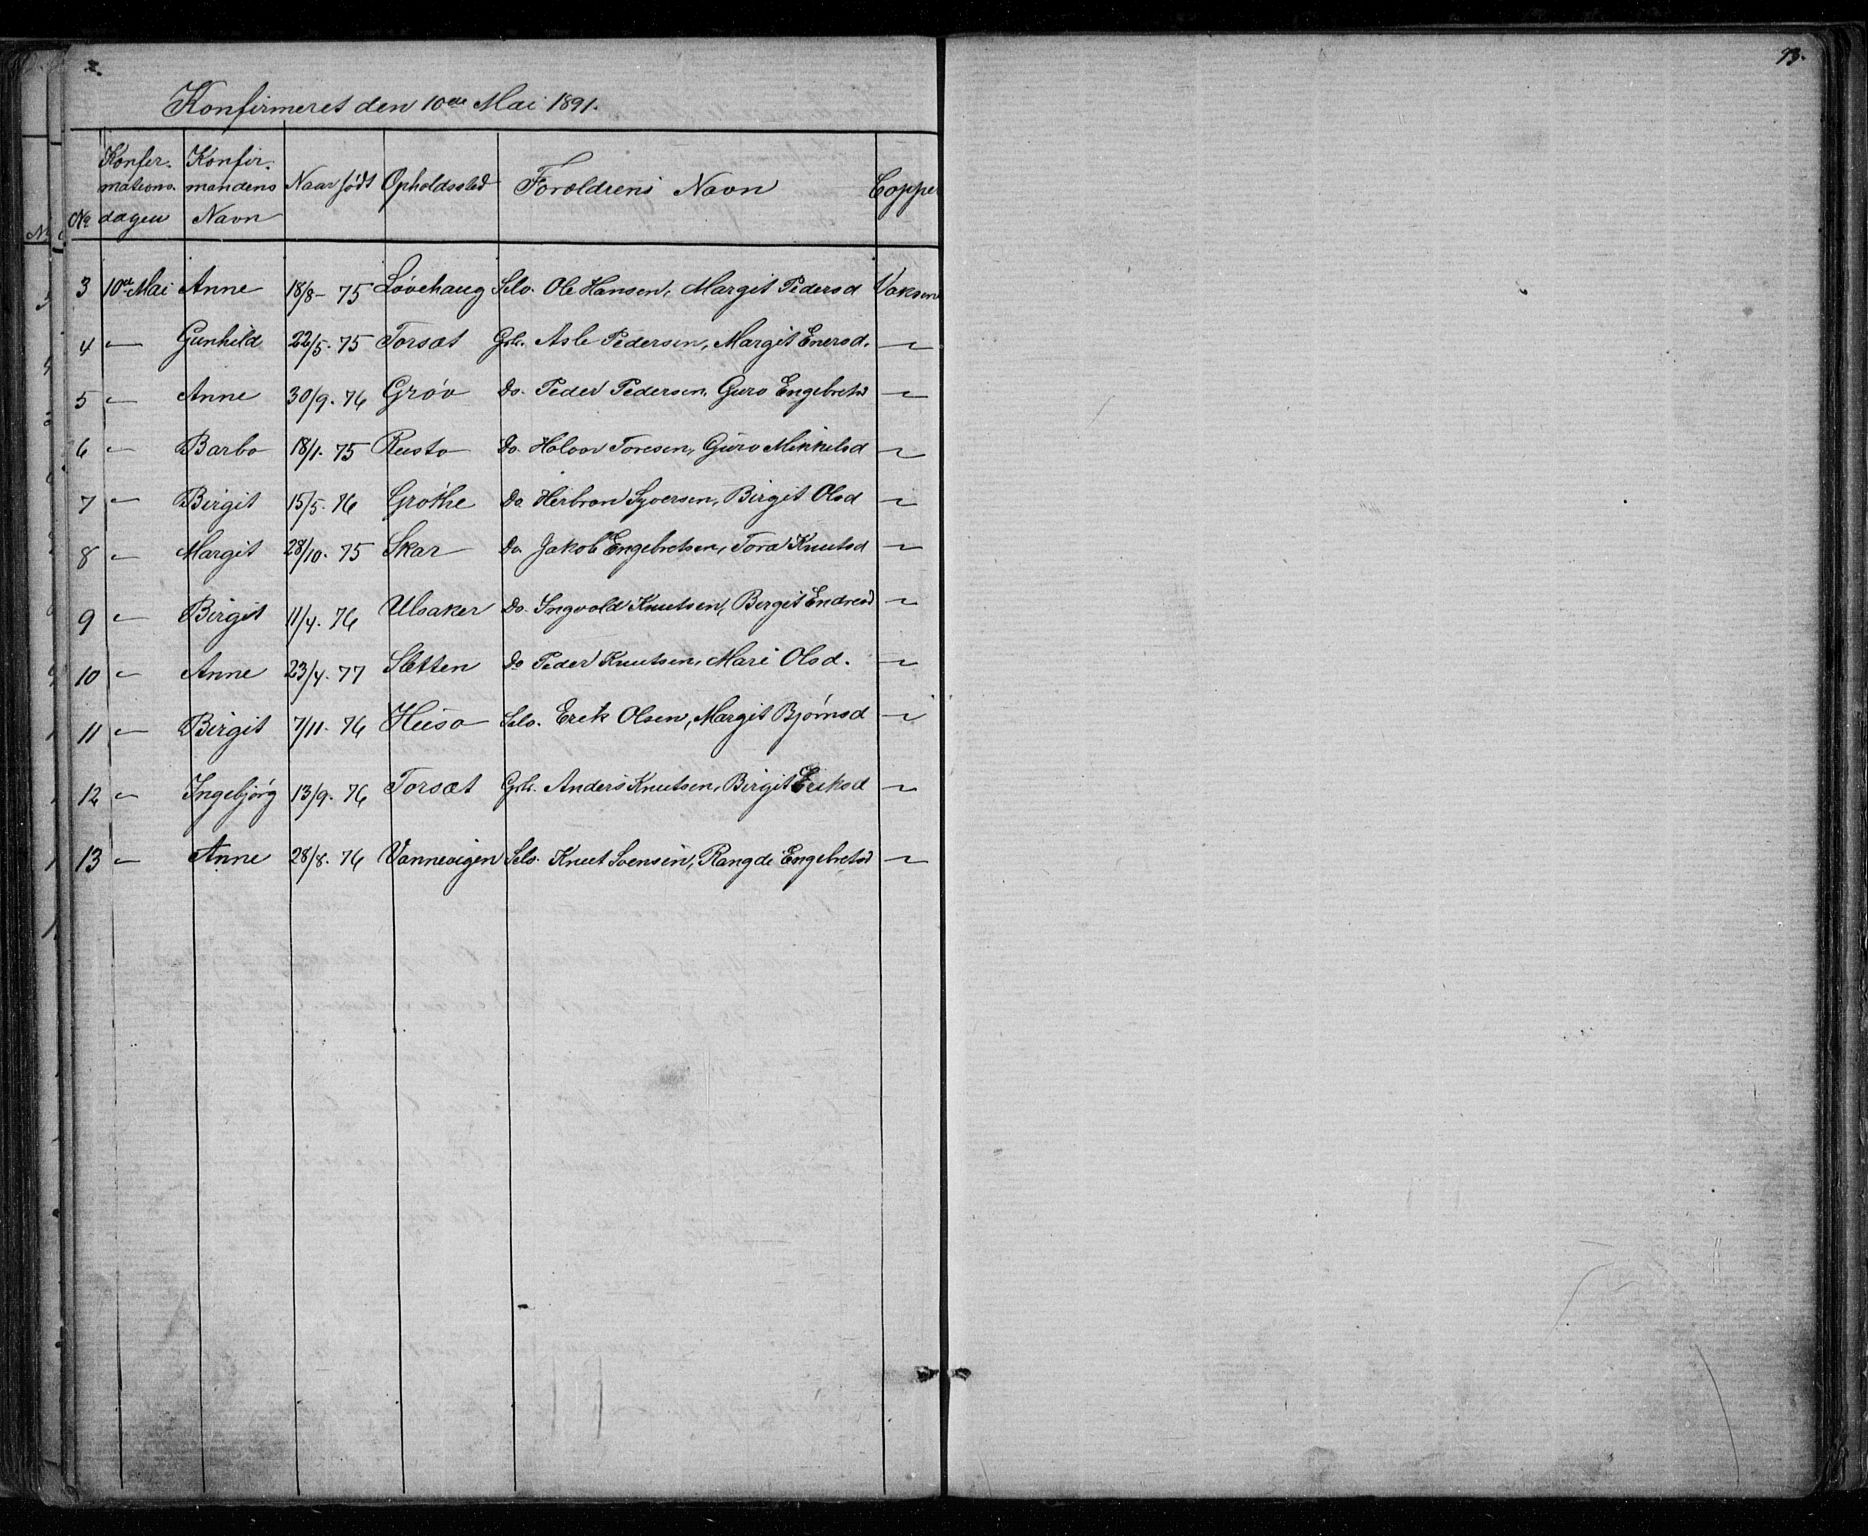 93.
Konfirmeret den 10de Mai 1891.
No Konfirmationsdagen Konfirmandens Navn Naar født Opholdssted Forældrens Navn Coppe
3 10de Mai Anne 18/8 - 75 Løvehaug Selv. Ole Hansen, Margit Pedersd Vaksin
4 〃 Gunhild 22/5. 75 Torsæt Grb. Asle Pedersen, Margit Enersd. 〃
5 〃 Anne 30/9. 76 Grøv Do. Peder Pedersen, Guro Engebretsd 〃
6 〃 Barbo 18/1. 75 Rusto Do. Holvor Toresen, Guro Mikkelsd 〃
7 〃 Birgit 15/5. 76 Grøthe Do Herbran Syversen, Birgit Olsd 〃
8 〃 Margit 28/10. 75 Skar Do. Jakob Engebretsen, Tora Knutsd 〃
9 〃 Birgit 11/4. 76 Ulsaker Do. Ingvold Knutsen, Bergit Endresd 〃
10 〃 Anne 23/4. 77 Sletten Do Peder Knutsen, Mari Olsd. 〃
11 〃 Birgit 7/11. 76 Huso Selv. Erik Olsen, Margit Bjørnsd 〃
12 〃 Ingebjørg 13/9. 76 Torsæt Grb. Anders Knutsen, Birgit Eriksd 〃
13 〃 Anne 28/8. 76 Vannevigen Selv. Knut Svensen, Rangdi Engebretsd 〃